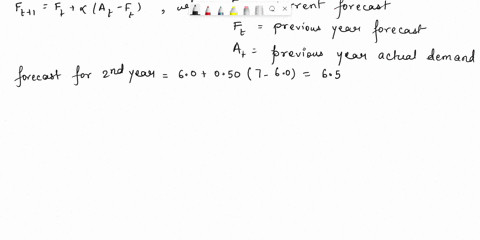 F_{t+1} = F_t + α (A_t - F_t) , forecast
F_t = previous year forecast
A_t = previous year actual demand
forecast for 2nd year = 6.0 + 0.50 (7 - 6.0) = 6.5